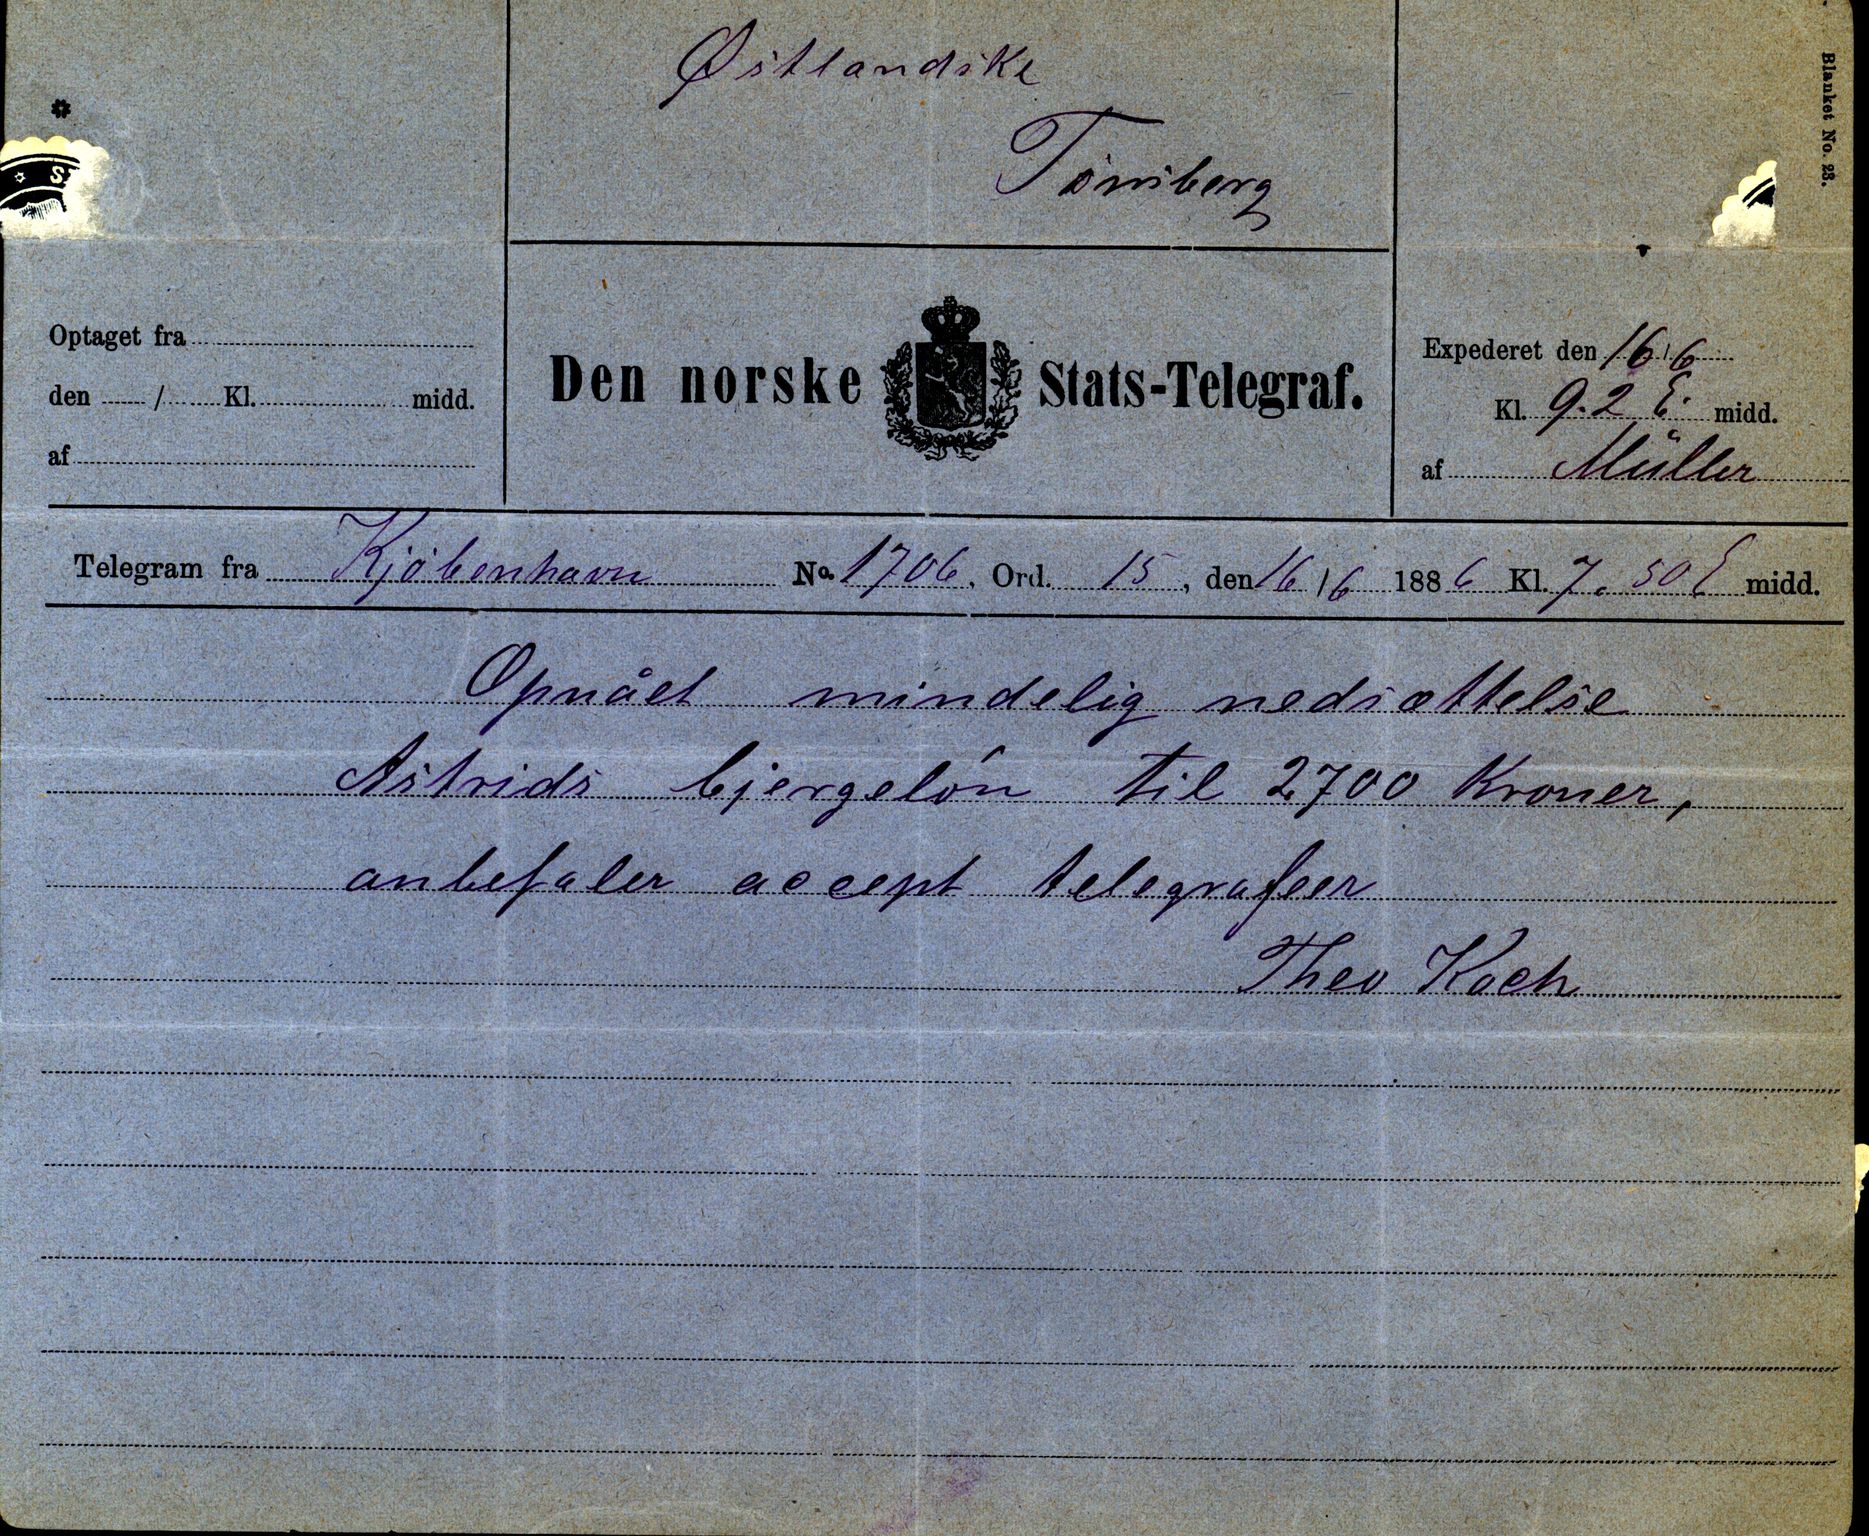 Østlandske
Tønsberg
Blanket No. 23.
Optaget fra
den / Kl. midd.
af
Den norske Stats-Telegraf.
Expederet den 16/6
Kl. 9.2 E. midd.
af Müller
Telegram fra Kjøbenhavn No. 1706, Ord. 15, den 16/6 1886 Kl. 7.50 E midd.
Opnået mindelig nedsættelse
Astrids bjergeløn til 2700 Kroner,
anbefaler accept telegrafeer
Theo Koch